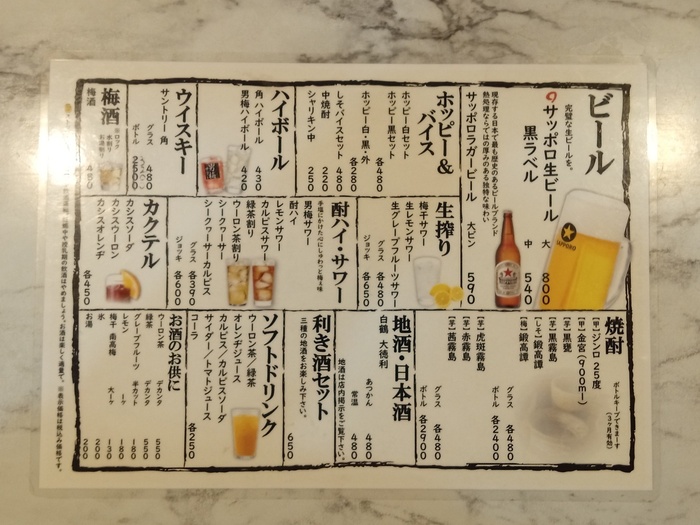 ビール
完璧な生ビールを。
サッポロ生ビール
黒ラベル
大 800
中 540
現存する日本で最も歴史のあるビールブランド
熱処理ならではの厚みのある独特な味わい
サッポロラガービール 大ビン 590
SAPPORO
ホッピー&
バイス
ホッピー白セット
ホッピー黒セット 各480
ホッピー白・黒・外 各280
しそバイスセット 480
中焼酎 220
シャリキン中 250
ハイボール
角ハイボール 430
男梅ハイボール 420
ウイスキー
サントリー角
グラス 480
ボトル 2500
梅酒
※ロック
水割り
お湯割り
梅酒 480
生搾り
梅干サワー
生レモンサワー
生グレープフルーツサワー
グラス 各480
ジョッキ 各650
酎ハイ・サワー
手塩にかけた心にしゅわっと梅ぇ味
男梅サワー
酎ハイ
レモンサワー
カルピスサワー
緑茶割り
ウーロン茶割り
シークヮーサー
シークヮーサーカルピス
グラス 各390
ジョッキ 各600
カクテル
カシスソーダ
カシスウーロン
カシスオレンヂ
各450
焼酎
ボトルキープできまーす
(3ヶ月有効)
【甲】ジンロ 25度
【甲】金宮(900ml)
【芋】黒甕
【芋】黒霧島
【しそ】鍛高譚
【梅】鍛高譚
グラス 各480
ボトル 各2400
【芋】虎斑霧島
【芋】赤霧島
【芋】茜霧島
グラス 各480
ボトル 各2900
地酒・日本酒
白鶴 大徳利
あつかん 480
常温 480
地酒は店内掲示をご覧下さい。
利き酒セット
三種の地酒をお楽しみ下さい。
650
ソフトドリンク
ウーロン茶/緑茶
オレンヂジュース
カルピス/カルピスソーダ
サイダー/トマトジュース
コーラ
各250
お酒のお供に
ウーロン茶 デカンタ 550
緑茶 デカンタ 550
グレープフルーツ 半カット 180
レモン 1ヶ 180
梅干 南高梅 大1ヶ 130
氷 200
お湯 200